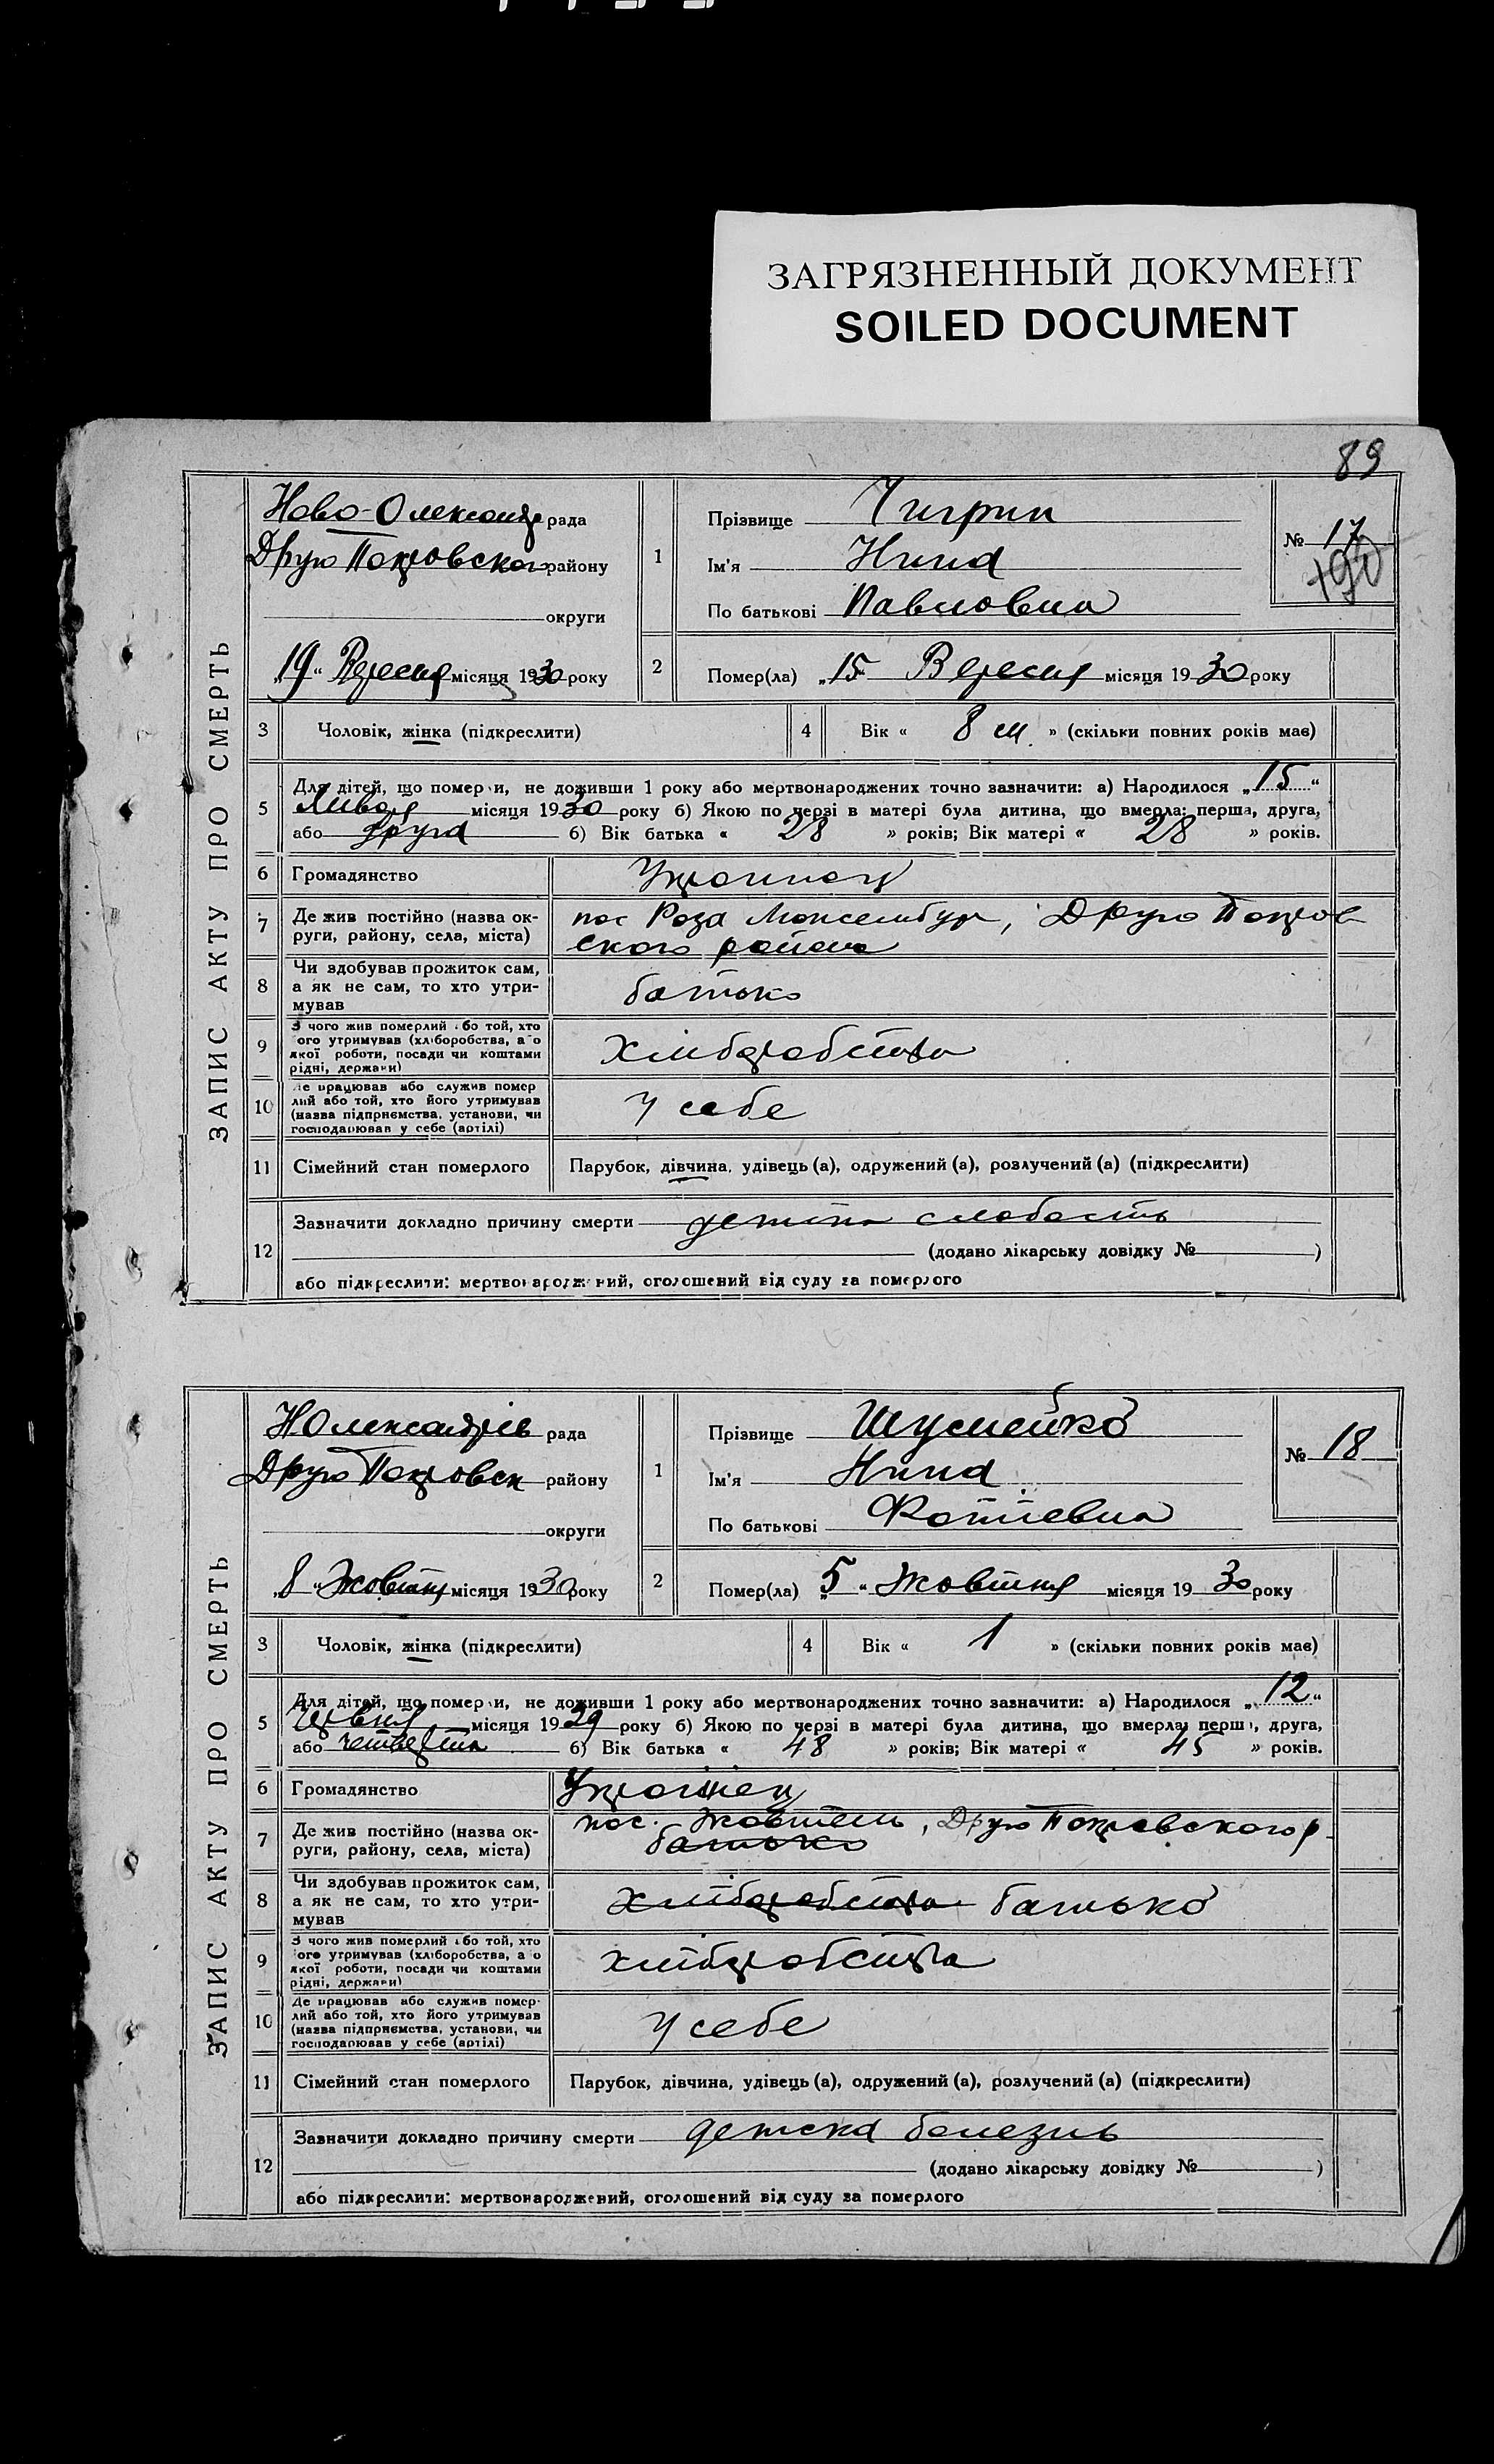 ЗАГРЯЗНЕННЫЙ ДОКУМЕНТ
SOILED DOCUMENT
89
ЗАПИС АКТУ ПРО СМЕРТЬ
Ново-Олександр рада
Друго Покровского району
округи
„19“ Вересня місяця 1930 року
1
Прізвище Чигрин
Ім'я Нина
По батькові Павловна
№ 17
190
2
Помер(ла) „15 Вересня місяця 1930 року
3 Чоловік, жінка (підкреслити)
4 Вік « 8 м. » (скільки повних років має)
5 Для дітей, що померли, не доживши 1 року або мертвонароджених точно зазначити: а) Народилося „15“
місяця 1930 року б) Якою по черзі в матері була дитина, що вмерла: перша, друга,
або друга б) Вік батька « 28 » років; Вік матері « 28 » років.
6 Громадянство
7 Де жив постійно (назва округи, району, села, міста)
пос Роза Люксембург, Друго Покров
ского района
8 Чи здобував прожиток сам, а як не сам, то хто утримував
батько
9 З чого жив померлий або той, хто його утримував (хліборобства, або якої роботи, посади чи коштами рідні, держави)
Хліборобство
10 Де працював або служив помер лий або той, хто його утримував (назва підприємства, установи, чи господарював у себе (артілі)
у себе
11 Сімейний стан померлого
Парубок, дівчина, удівець (а), одружений (а), розлучений (а) (підкреслити)
12 Зазначити докладно причину смерти слабость
(додано лікарську довідку № )
або підкреслити: мертвонароджений, оголошений від суду за померлого
ЗАПИС АКТУ ПРО СМЕРТЬ
НОлександрів рада
Друго Покровск району
округи
„8“ Жовтня місяця 1930 року
1
Прізвище Шумейко
Ім'я Нина
По батькові Фотіевна
№ 18
2
Помер(ла) „5“ Жовтня місяця 1930 року
3 Чоловік, жінка (підкреслити)
4 Вік « 1 » (скільки повних років має)
5 Для дітей, що померли, не доживши 1 року або мертвонароджених точно зазначити: а) Народилося „12“
Червня місяця 1929 року б) Якою по черзі в матері була дитина, що вмерла: перша, друга,
або четверта б) Вік батька « 48 » років; Вік матері « 45 » років.
6 Громадянство Українец
7 Де жив постійно (назва округи, району, села, міста)
пос. Жовтень, Друго Покровского р
батько
8 Чи здобував прожиток сам, а як не сам, то хто утримував
Хліборобство батько
9 З чого жив померлий або той, хто його утримував (хліборобства, або якої роботи, посади чи коштами рідні, держави)
хліборобства
10 Де працював або служив помер- лий або той, хто його утримував (назва підприємства, установи, чи господарював у себе (артілі)
у себе
11 Сімейний стан померлого
Парубок, дівчина, удівець (а), одружений (а), розлучений (а) (підкреслити)
12 Зазначити докладно причину смерти детска болезнь
(додано лікарську довідку № )
або підкреслити: мертвонароджений, оголошений від суду за померлого